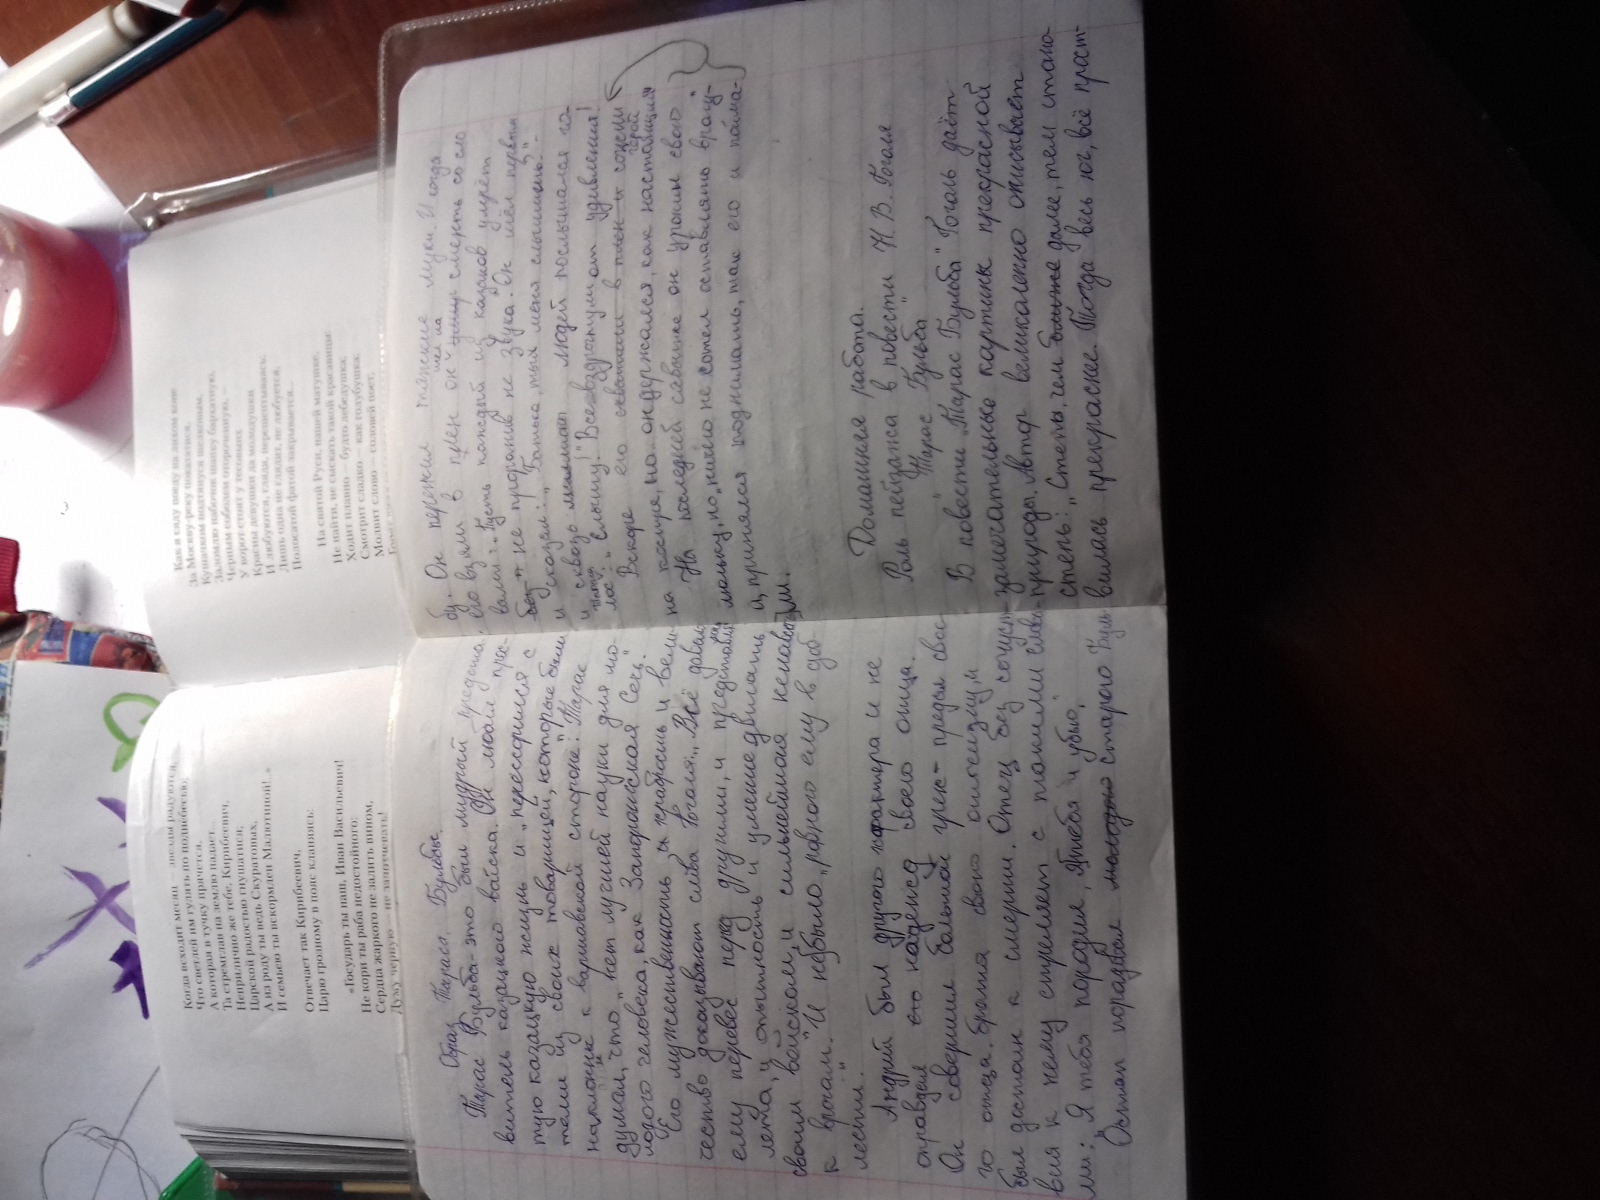 Когда всходит месяц – звезды радуются,
Что светлей им гулять по поднебесью;
А которая в тучку прячется,
Та стремглав на землю падает...
Неприлично же тебе, Кирибеевич,
Царской радостью гнушатися;
А из роду ты ведь Скуратовых,
И семьею ты вскормлен Малютиной!..»
Отвечает так Кирибеевич,
Царю грозному в пояс кланяясь:
«Государь ты наш, Иван Васильевич!
Не кори ты раба недостойного:
Сердца жаркого не залить вином,
Думу черную – не запотчевать!
Как я сяду поеду на лихом коне
За Москву-реку покататися,
Кушачком подтянуся шелковым,
Заломлю набочок шапку бархатную,
Черным соболем отороченную, –
У ворот стоят у тесовыих
Красны девушки да молодушки
И любуются, глядя, перешептываясь;
Лишь одна не глядит, не любуется,
Полосатой фатой закрывается...
На святой Руси, нашей матушке,
Не найти, не сыскать такой красавицы:
Ходит плавно – будто лебедушка;
Смотрит сладко – как голубушка;
Молвит слово – соловей поет;
Образ Тараса Бульбы.
Тарас Бульба- это был мудрый предста-
витель казацкого вайска. Он любил прос-
тую казацкую жизнь и „перессорился с
теми из своих товарищей, которые были
наклонны к варшавской стороне". Тарас
думал, что „нет лучшей науки для мо-
лодого человека, как Запорожская Сечь".
Его мужественность и храбрость и вели-
чество доказывают слова Гоголя: „Всё давало
ему перевес перед другими, и
лета, и опытность и умение двигать
своим войском, и сильнейшая ненависть
к врагам." И небыло „равного ему в доб
лести.
Андрий был другого характера и не
оправдал его надежд своего отца.
Он совершил большой грех- предал сво-
го отца, братта свого отчизну, и
был достоин к смерти. Отец без сочуст-
вия к нему стреляет с такими слова-
ми: „Я тебя породил, я тебя и убью".
Остап порадвал молодой старого Буль-
бу. Он пережил тяжкие муки. И когда
его взяли в плен он шёл на смерть со сло
вами: „Пусть каждый из казаков умрёт
не проронив не звука". Он шёл первым
и сказал: „Батька, ты меня слышишь. -
и сквозь людей послышался го-
лос: „Слышу!" Все вздрогнули от удивления!
Вскоре его схватили в плен и сожгли
на костре, но он держался, как настоящий герой
На последней савышке он уронил свою
люльку, но „ничего не хотел оставлять врагу"
и, принялся поднимать, так его и пойма-
ли.
Домашняя работа.
Роль пейзажа в повести Н. В. Гоголя
„Тарас Бульба"
В повести „Тарас Бульба" Гоголь даёт
замечательные картинки прекрасной
природы. Автор великолепно описывает
степь: „Степь, чем ближе далее, тем стано-
вилась прекраснее. Тогда весь юг, всё прост-